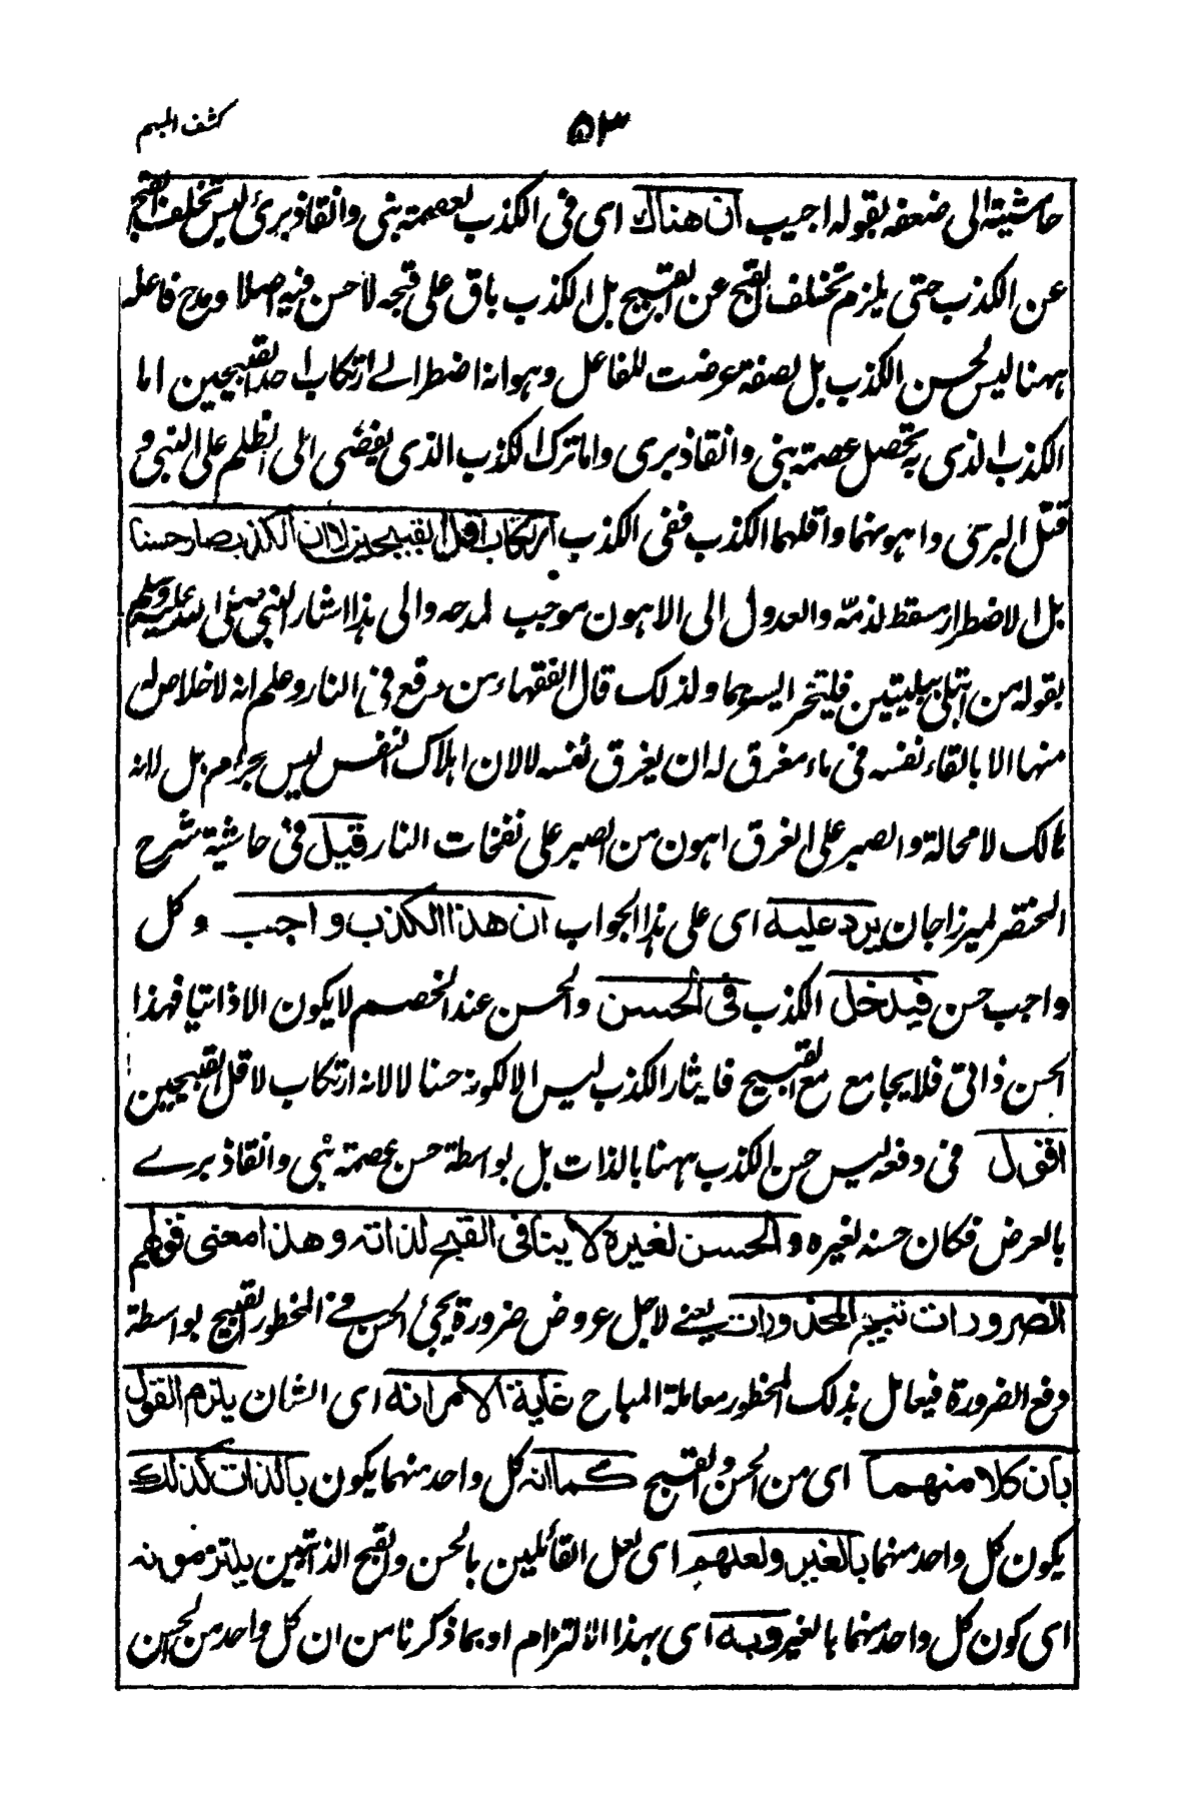 كشف المبهم
٥٣
حاشيته الى ضعفه بقوله اجيب ان هناك اى فى الكذب لعصمة نبى وانقاذ برئ ليس تخلف القبح
عن الكذب حتى يلزم تخلف القبح عن القبيح بل الكذب باق على قبحه لا حسن فيه اصلا ومدح فاعله
ههنا ليس لحسن الكذب بل لصفة عرضت للفاعل وهو انه اضطر الے ارتكاب احد القبيحين اما
الكذب الذى به تحصل عصمة نبى وانقاذ برى واما ترك الكذب الذى يفضى الى الظلم على النبى و
قتل البرى واهونهما واقلهما الكذب ففى الكذب ارتكاب اقل القبيحين لا ان الكذب صار حسنا
بل الاضطرار مسقط لذمّه والعدول الى الاهون موجب لمدحه والى هذا اشار النبى صلى الله عليه وسلم
بقوله من ابتلى ببليتين فليتخر ايسرهما ولذلك قال الفقهاء من وقع فى النار وعلم انه لا خلاص له
منها الا بالقاء نفسه فى ماء مغرق له ان يغرق نفسه لا لان اهلاك النفس ليس بحرام بل لانه
هالك لا محالة والصبر على الغرق اهون من الصبر على نفخات النار قيل فى حاشية شرح
المختصر لميرزاجان يرد عليه اى على هذا الجواب ان هذا الكذب واجب وكل
واجب حسن فيدخل الكذب فى الحسن والحسن عند الخصم لا يكون الا ذاتيا فهذا
الحسن ذاتى فلا يجامع مع القبيح فايثار الكذب ليس الا لكونه حسنا لا لانه ارتكاب لاقل القبيحين
اقول فى دفعه ليس حسن الكذب ههنا بالذات بل بواسطة حسن عصمة نبى وانقاذ برے
بالعرض فكان حسنه لغيره والحسن لغيره لا ينافى القبح لذاته وهذا معنى قولهم
الضرورات تبيح المحذورات يعنے لاجل عروض ضرورة يجئ الحسن فے المحظور القبيح بواسطة
دفع الضرورة فيعامل بذلك المحظور معاملة المباح غاية الامر انه اى الشان يلزم القول
بان كلا منهما اى من الحسن والقبيح كما انه كل واحد منهما يكون بالذات كذلك
يكون كل واحد منهما بالغير ولعلهم اى لعل القائلين بالحسن والقبح الذاتيين يلتزمونه
اى كون كل واحد منهما بالغير وبه اى بهذا الالتزام او بما ذكرنا من ان كل واحد من الحسن